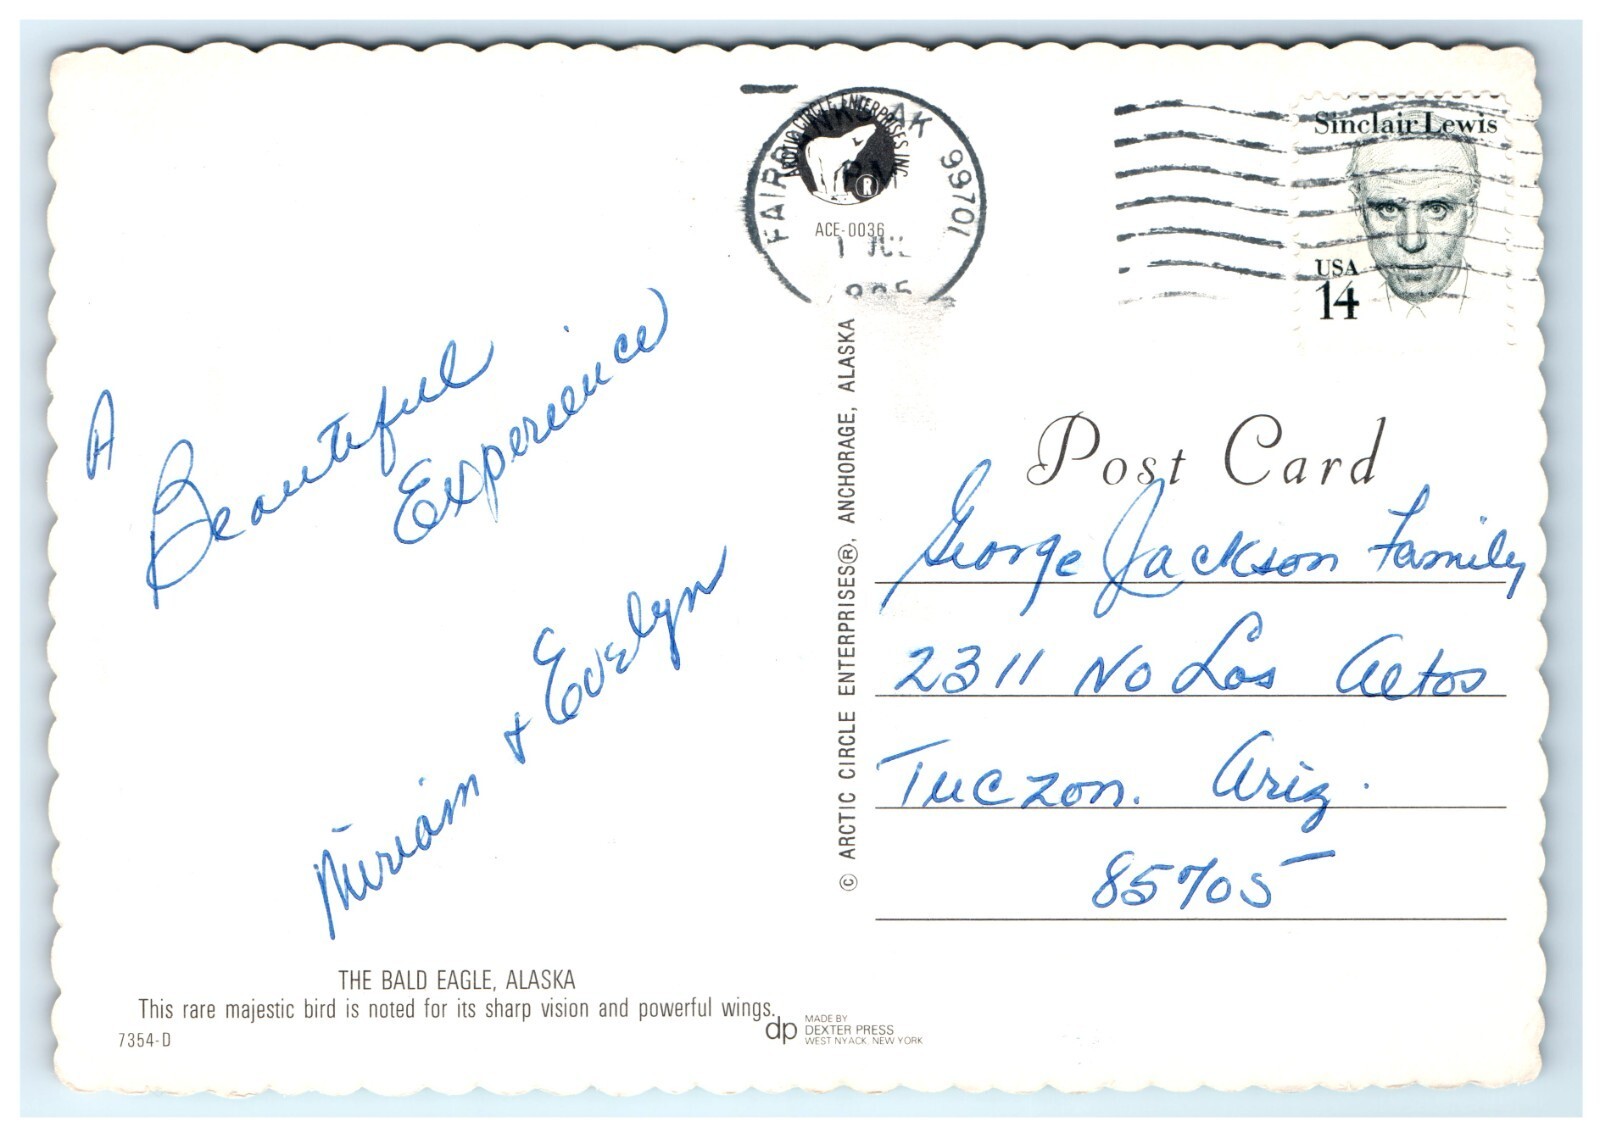 A
Beautiful
Experience
Miriam + Evelyn
THE BALD EAGLE, ALASKA
This rare majestic bird is noted for its sharp vision and powerful wings.
7354-D
dp MADE BY
DEXTER PRESS
WEST NYACK, NEW YORK
© ARCTIC CIRCLE ENTERPRISES®, ANCHORAGE, ALASKA
ARCTIC CIRCLE ENTERPRISES INC.
®
ACE-0036
AK 99701
PM
1 JUL
Sinclair Lewis
USA
14
Post Card
George Jackson Family
2311 No Los Altos
Tuczon. Ariz.
85705